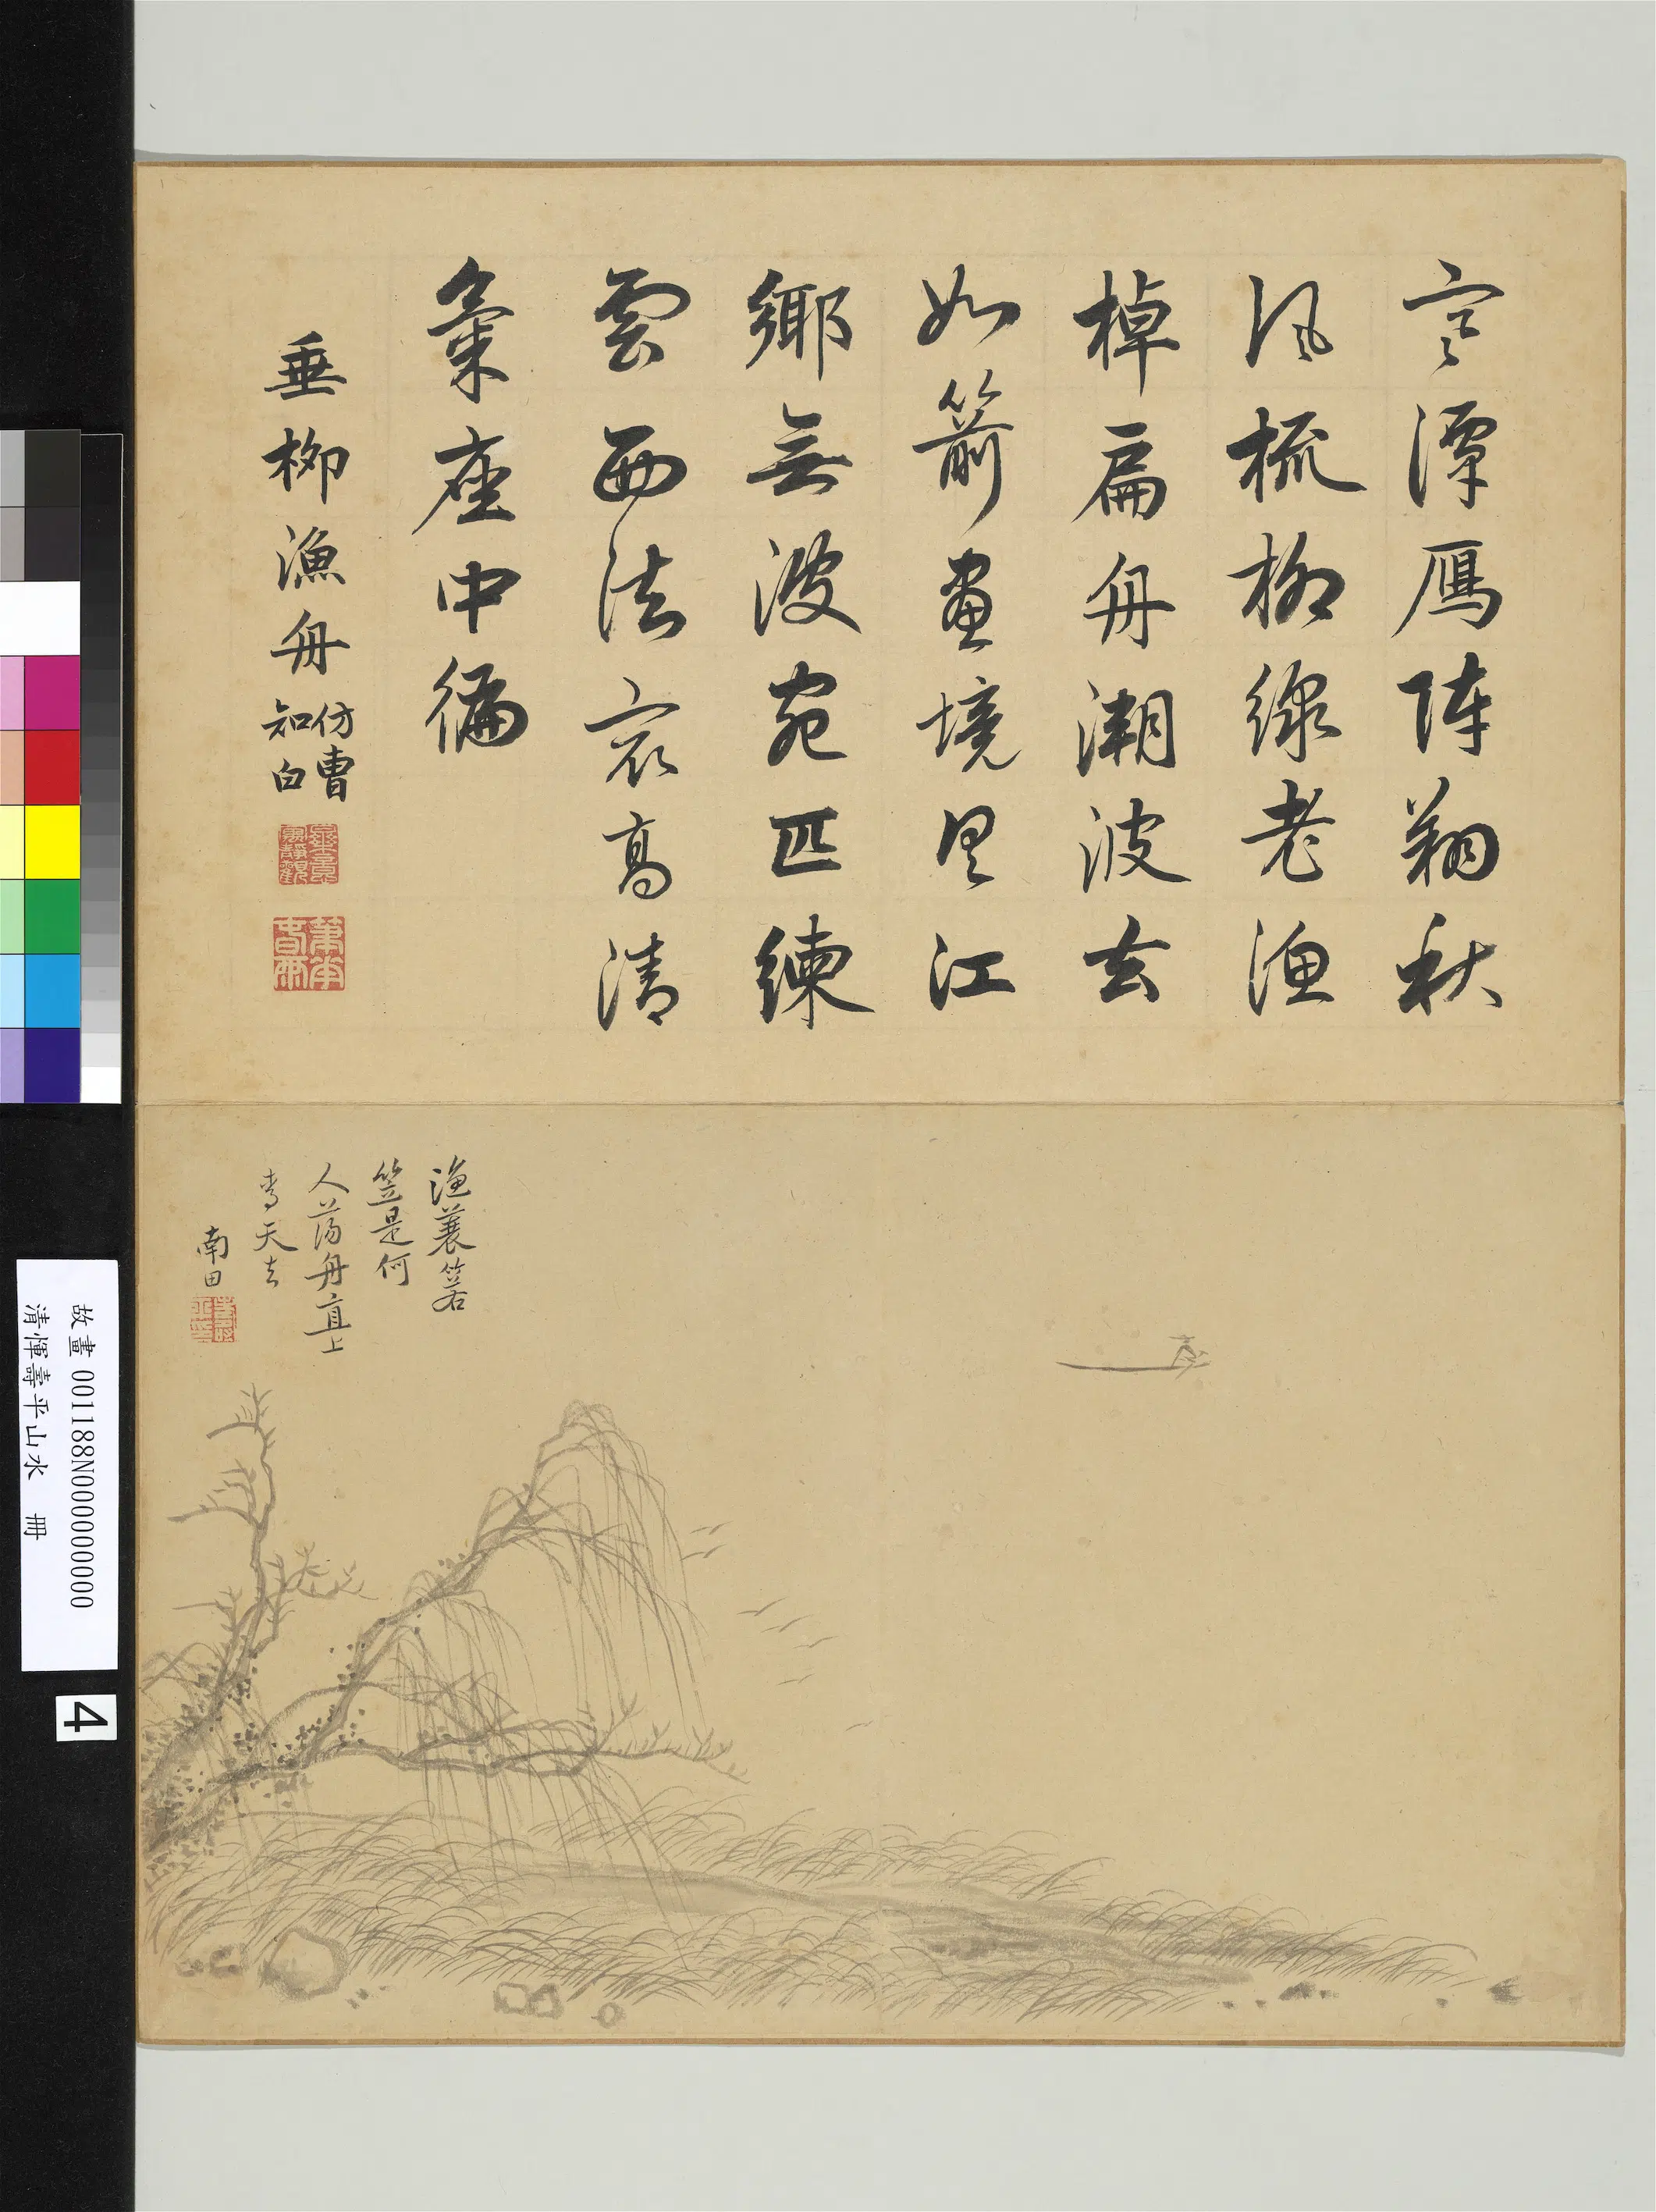 寥潭雁陣翔秋
風梳柳線老漁
棹扁舟潮波去
如箭畫境里江
鄉無波宛匹練
雲西法哀高清
氣座中徧
垂柳漁舟
仿曹
知白
漁蓑箬
笠是何
人蕩舟直上
青天去
南田
故畫 001188N000000000
清惲壽平山水 冊
4